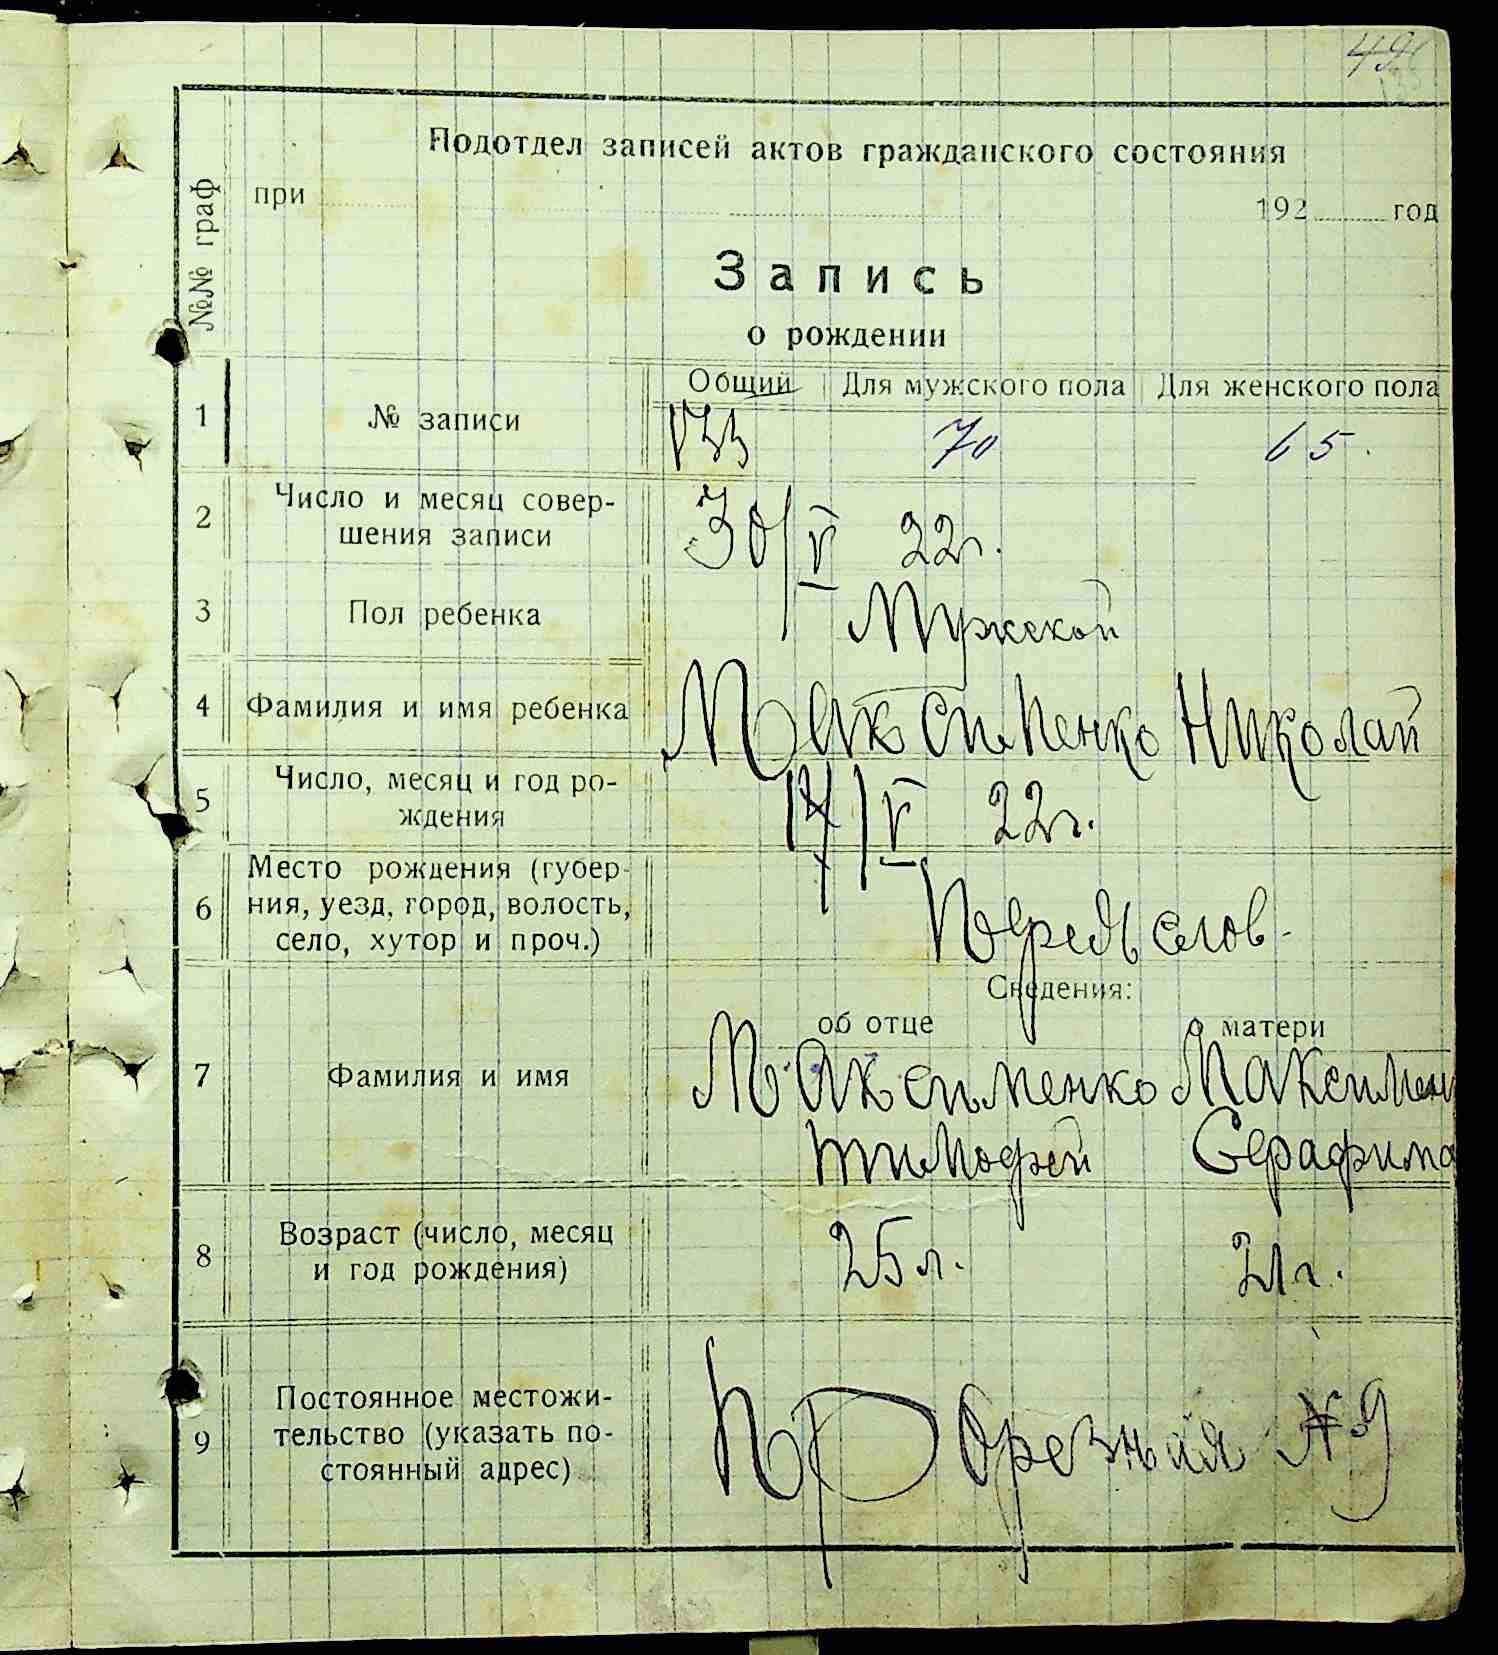 49
Подотдел записей актов гражданского состояния
при 192 год
№№ граф
Запись
о рождении
Общий Для мужского пола Для женского пола
1 № записи 133 70 65.
2 Число и месяц совер-
шения записи 30/V 22г.
3 Пол ребенка Мужской
4 Фамилия и имя ребенка Максименко Николай
5 Число, месяц и год ро-
ждения 14/V 22г.
Место рождения (губер-
6 ния, уезд, город, волость,
село, хутор и проч.)
Сведения:
об отце о матери
7 Фамилия и имя Максименко Максимен
Тимофей Серафима
8 Возраст (число, месяц
и год рождения) 25 л. 21 г.
9 Постоянное местожи-
тельство (указать по-
стоянный адрес) №9